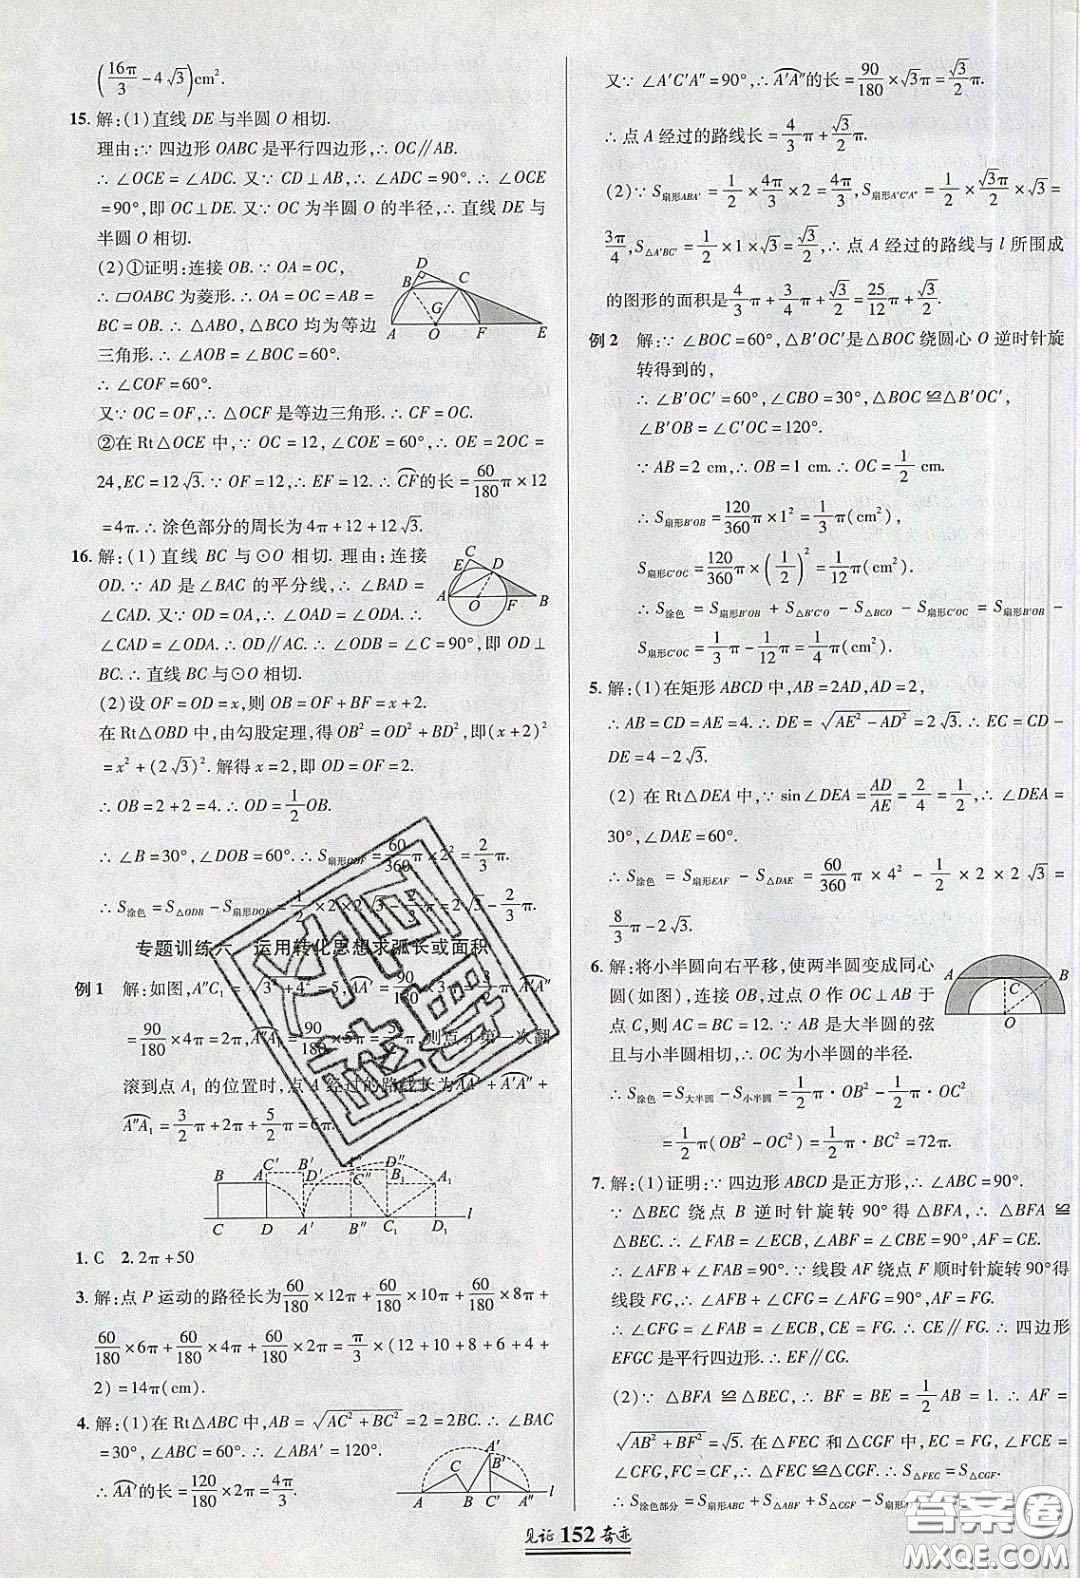 (16π/3 − 4√3)cm².
15. 解:(1)直线 DE 与半圆 O 相切.
理由:∵ 四边形 OABC 是平行四边形,∴ OC∥AB.
∴ ∠OCE=∠ADC. 又∵ CD⊥AB,∴ ∠ADC=90°.∴ ∠OCE
=90°,即 OC⊥DE. 又∵ OC 为半圆 O 的半径,∴ 直线 DE 与
半圆 O 相切.
(2)①证明:连接 OB.∵ OA=OC,
∴ ▱OABC 为菱形.∴ OA=OC=AB=
BC=OB.∴ △ABO,△BCO 均为等边
三角形.∴ ∠AOB=∠BOC=60°.
∴ ∠COF=60°.
D
B
C
G
A
O
F
E
又∵ OC=OF,∴ △OCF 是等边三角形.∴ CF=OC.
②在 Rt△OCE 中,∵ OC=12,∠COE=60°,∴ OE=2OC=
24,EC=12√3.∵ OF=12,∴ EF=12.∴ ⌒CF的长=60/180π×12
=4π.∴ 涂色部分的周长为 4π+12+12√3.
16. 解:(1)直线 BC 与⊙O 相切. 理由:连接
OD.∵ AD 是∠BAC 的平分线,∴ ∠BAD=
∠CAD. 又∵ OD=OA,∴ ∠OAD=∠ODA.∴
∠CAD=∠ODA.∴ OD∥AC.∴ ∠ODB=∠C=90°,即 OD⊥
BC.∴ 直线 BC 与⊙O 相切.
C
E
D
A
O
F
B
(2)设 OF=OD=x,则 OB=OF+BF=x+2.
在 Rt△OBD 中,由勾股定理,得 OB²=OD²+BD²,即(x+2)²
=x²+(2√3)². 解得 x=2,即 OD=OF=2.
∴ OB=2+2=4.∴ OD=1/2OB.
∴ ∠B=30°,∠DOB=60°.∴ S扇形ODF=60/360π×2²=2/3π.
∴ S涂色=S△ODB−S扇形DOF=1/2×2×2√3−2/3π=2√3−2/3π.
专题训练六 运用转化思想求弧长或面积
例 1 解:如图,A″C₁=√(3²+4²)=5,⌒AA′=90/180×3π=3/2π
=90/180×4π=2π,⌒A″A₁=90/180×5π=5/2π,则点 A 第一次翻
滚到点 A₁ 的位置时,点 A 经过的路线长为⌒AA′+⌒A′A″+
⌒A″A₁=3/2π+2π+5/2π=6π.
B A C′ B′ D′ A″ B₁ A₁
C D A′ B″ C₁ D₁ l
1. C 2. 2π+50
3. 解:点 P 运动的路径长为60/180×12π+60/180×10π+60/180×8π+
60/180×6π+60/180×4π+60/180×2π=π/3×(12+10+8+6+4+
2)=14π(cm).
4. 解:(1)在 Rt△ABC 中,AB=√(AC²+BC²)=2=2BC.∴ ∠BAC
=30°,∠ABC=60°.∴ ∠ABA′=120°.
∴ ⌒AA′的长=120/180×2π=4π/3.
A C B A′ B′ C′ A″ l
又∵ ∠A′C′A″=90°,∴ ⌒A′A″的长=90/180×√3π=√3/2π.
∴ 点 A 经过的路线长=4/3π+√3/2π.
(2)∵ S扇形ABA′=1/2×4π/3×2=4π/3,S扇形A′C′A″=1/2×√3π/2×√3=
3π/4,S△A′BC′=1/2×1×√3=√3/2,∴ 点 A 经过的路线与 l 所围成
的图形的面积是4/3π+3/4π+√3/2=25/12π+√3/2.
例 2 解:∵ ∠BOC=60°,△B′OC′是△BOC 绕圆心 O 逆时针旋
转得到的,
∴ ∠B′OC′=60°,∠CBO=30°,△BOC≌△B′OC′,
∠B′OB=∠C′OC=120°.
∵ AB=2 cm,∴ OB=1 cm.∴ OC=1/2 cm.
∴ S扇形B′OB=120/360π×1²=1/3π(cm²),
S扇形C′OC=120/360π×(1/2)²=1/12π(cm²).
∴ S涂色=S扇形B′OB+S△B′C′O−S△BCO−S扇形C′OC=S扇形B′OB−
S扇形C′OC=1/3π−1/12π=1/4π(cm²).
5. 解:(1)在矩形 ABCD 中,AB=2AD,AD=2,
∴ AB=CD=AE=4.∴ DE=√(AE²−AD²)=2√3.∴ EC=CD−
DE=4−2√3.
(2) 在 Rt△DEA 中,∵ sin∠DEA=AD/AE=2/4=1/2,∴ ∠DEA=
30°,∠DAE=60°.
∴ S涂色=S扇形EAF−S△DAE=60/360π×4²−1/2×2×2√3=
8/3π−2√3.
6. 解:将小半圆向右平移,使两半圆变成同心
圆(如图),连接 OB,过点 O 作 OC⊥AB 于
点 C,则 AC=BC=12.∵ AB 是大半圆的弦
且与小半圆相切,∴ OC 为小半圆的半径.
A C B
O
∴ S涂色=S大半圆−S小半圆=1/2π·OB²−1/2π·OC²
=1/2π(OB²−OC²)=1/2π·BC²=72π.
7. 解:(1)证明:∵ 四边形 ABCD 是正方形,∴ ∠ABC=90°.
∵ △BEC 绕点 B 逆时针旋转 90°得△BFA,∴ △BFA≌
△BEC.∴ ∠FAB=∠ECB,∠ABF=∠CBE=90°,AF=CE.
∴ ∠AFB+∠FAB=90°.∵ 线段 AF 绕点 F 顺时针旋转 90°得
线段 FG,∴ ∠AFB+∠CFG=∠AFG=90°,AF=FG.
∴ ∠CFG=∠FAB=∠ECB,CE=FG.∴ CE∥FG.∴ 四边形
EFGC 是平行四边形.∴ EF∥CG.
(2)∵ △BFA≌△BEC,∴ BF=BE=1/2AB=1.∴ AF=
√(AB²+BF²)=√5. 在△FEC 和△CGF 中,∵ EC=FG,∠FCE=
∠CFG,FC=CF,∴ △FEC≌△CGF.∴ S△FEC=S△CGF.
∴ S涂色部分=S扇形ABC+S△ABF+S△CGF−S扇形AFG
见证 152 奇迹
答案圈
MXQE.COM